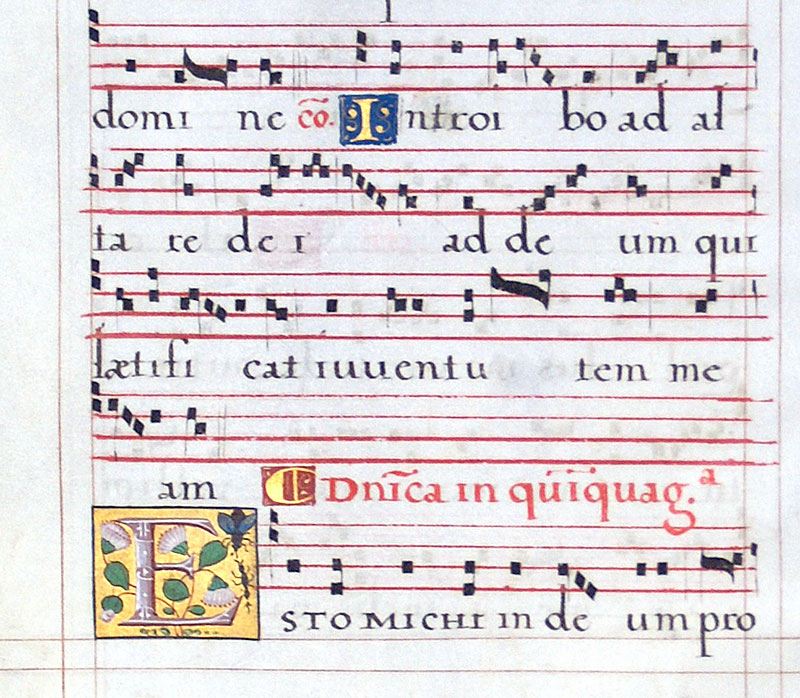 domi ne cō. Introi bo ad al
ta re de i ad de um qui
lætifi cat iuuentu tem me
am Dn̄ica in quīquag.ᵃ
ESTO MICHI in de um pro